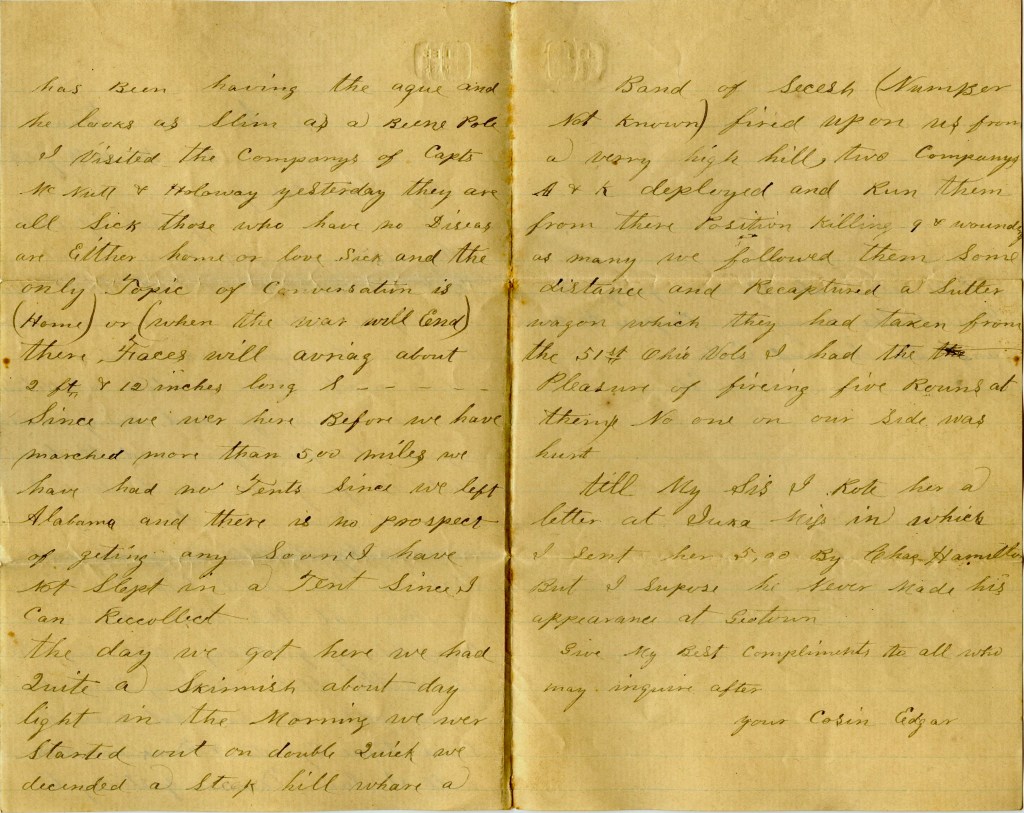 has Been having the ague and
he looks as Slim as a Beene Pole
I Visited the Companys of Capts
Mc Nutt & Holaway yesterday they are
all Sick those who have no Diseas
are Either home or love Sick and the
only Topic of Conversation is
(Home) or (when the war will End)
there Faces will avriag about
2 ft & 12 inches long S - - - - -
Since we wer here Before we have
marched more than 5,00 miles we
have had no Tents since we left
Alabama and there is no prospect
of geting any Soon I have
Not Slept in a Tent Since I
Can Reccollect
the day we got here we had
Quite a Skirmish about day
light in the Morning we wer
Started out on double Quick we
decended a Steep hill whare a
Band of Secesh (Number
Not Known) fired upon us from
a verry high hill, two Companys
A & K deployed and Run them
from there Position Killing 9 & wounding
as many we followed them Some
distance and Recaptured a Sutler
wagon which they had taken from
the 51st Ohio Vols I had the the
Pleasure of fireing five Rouns at
them, No one on our Side was
hurt
till My Sis I Rote her a
letter at Iuka Miss in which
I Sent her 5,00 By Chas Hamilton
But I Supose he Never Made his
appearance at Geotown
Give My Best Compliments to all who
may inquire after
your Cosin Edgar